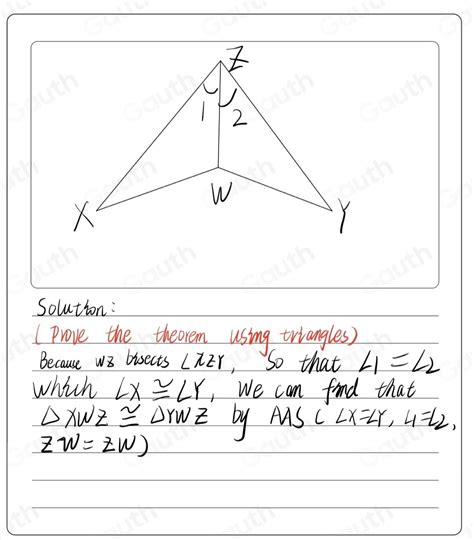 Z
1 2
W
X Y
Solution:
(Prove the theorem using triangles)
Because WZ bisects ∠XZY, So that ∠1=∠2
Which ∠X≅∠Y, We can find that
△XWZ≅△YWZ by AAS (∠X=∠Y, ∠1=∠2,
ZW=ZW)